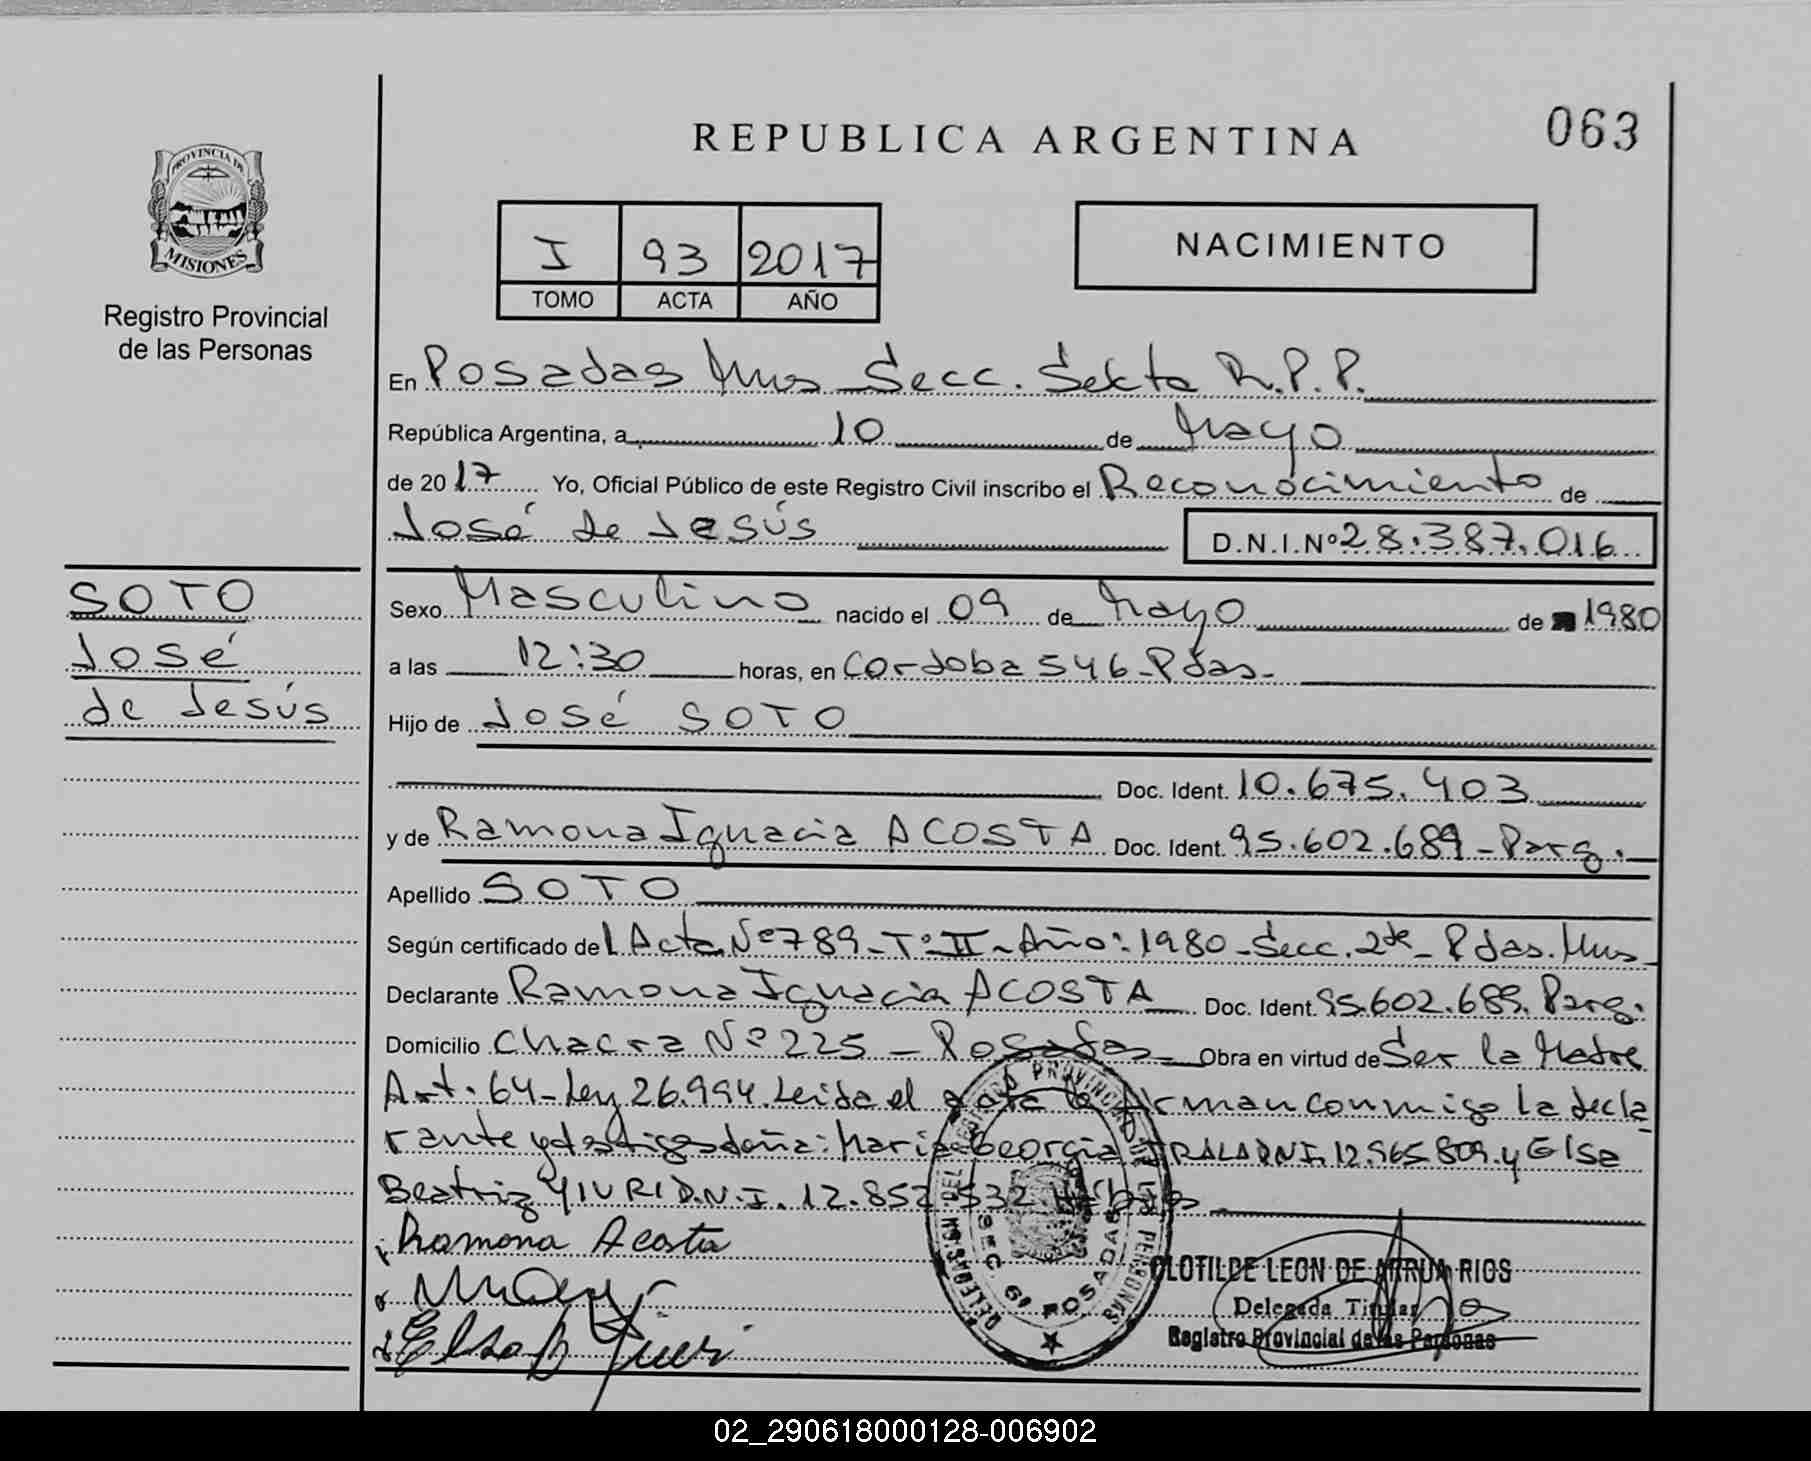 REPUBLICA ARGENTINA
063
PROVINCIA DE
MISIONES
Registro Provincial
de las Personas
I 93 2017
TOMO ACTA AÑO
NACIMIENTO
En Posadas Mnes Secc. Sexta R.P.P.
República Argentina, a 10 de Mayo
de 2017 Yo, Oficial Público de este Registro Civil inscribo el Reconocimiento de
José de Jesús D.N.I.Nº 28.387.016
SOTO
José
de Jesús
Sexo Masculino nacido el 09 de Mayo de 1980
a las 12:30 horas, en Cordoba 546-Pdas-
Hijo de José SOTO
Doc. Ident. 10.675.403
y de Ramona Ignacia ACOSTA Doc. Ident. 95.602.689-Parg.
Apellido SOTO
Según certificado del Acta Nº 789-Tº II-Año: 1980-Secc. 2da-Pdas. Mnes
Declarante Ramona Ignacia ACOSTA Doc. Ident. 95.602.689. Parg.
Domicilio Chacra Nº 225 - Posadas - Obra en virtud de Ser la Madre
Art. 64-Ley 26.994. Leida el acta la firman conmigo la decla
rante y testigos doña: Maria Georgia IRALA DNI. 12.965.809. y Elsa
Beatriz YIURI D.N.I. 12.852.532 Hábiles
Ramona Acosta
CLOTILDE LEON DE ARRUA RIOS
Delegada Titular
Registro Provincial de las Personas
SEC 6ª POSADAS
02_290618000128-006902